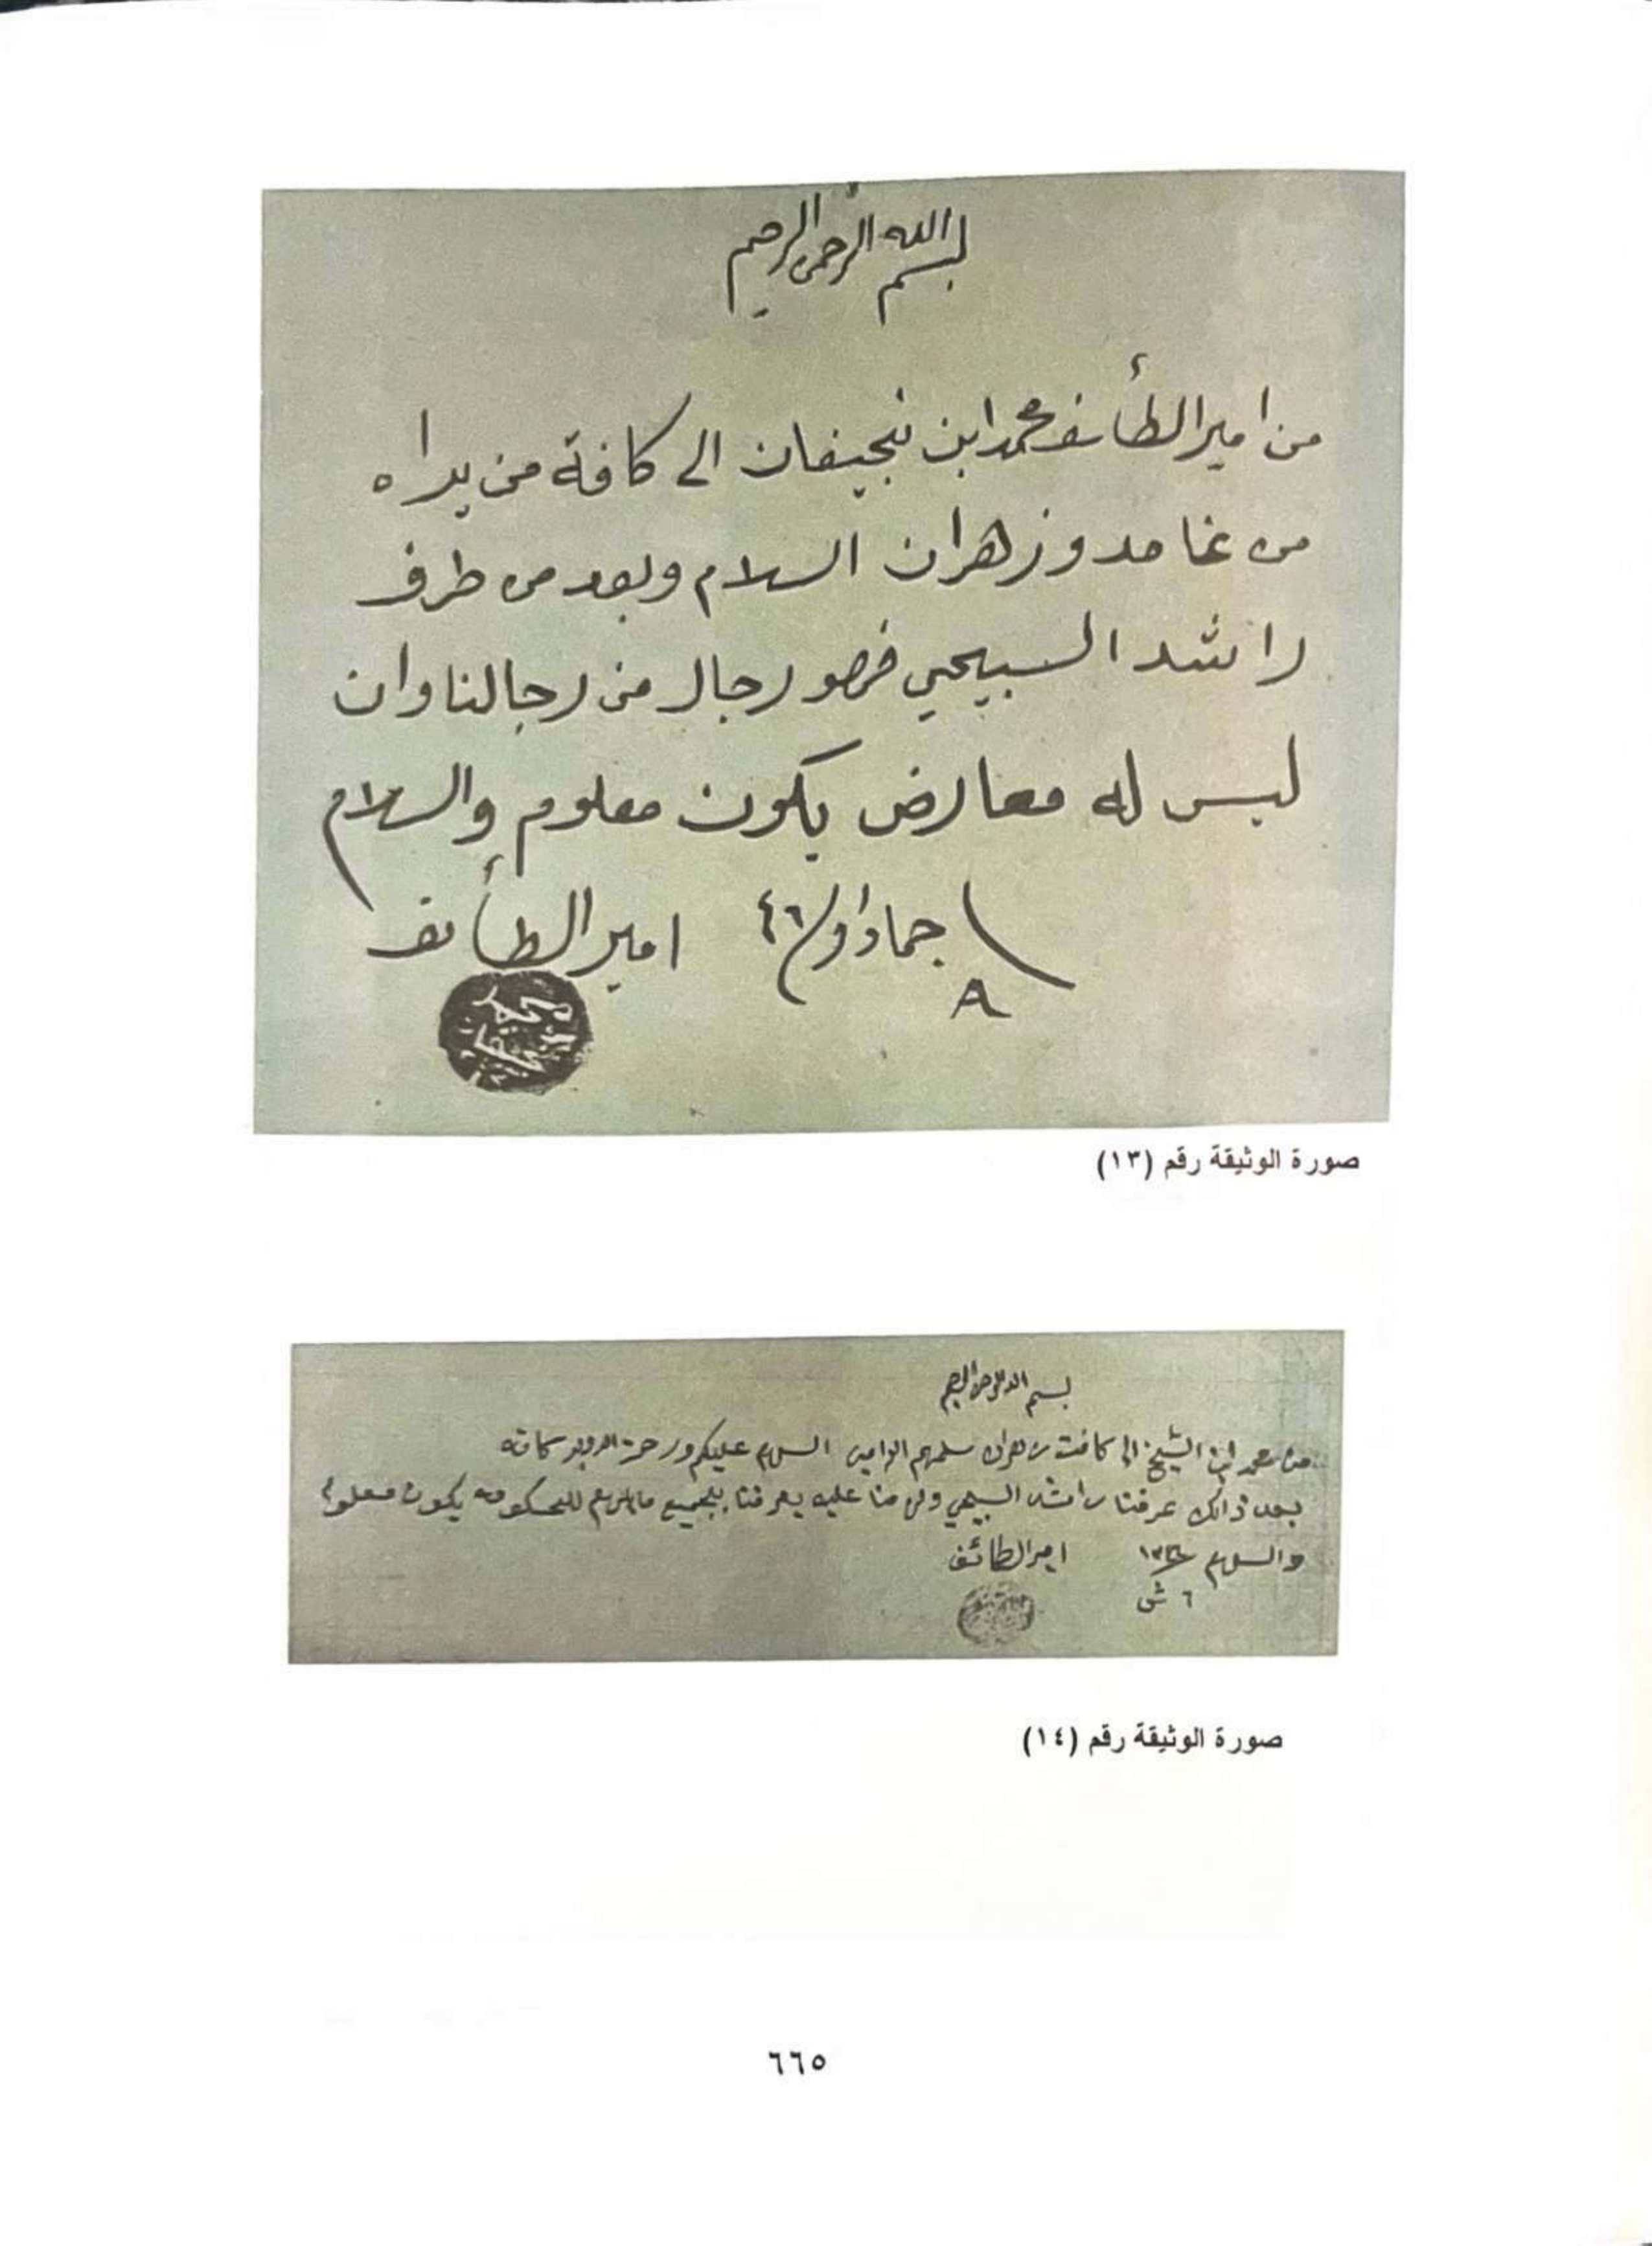 بسم الله الرحمن الرحيم
من امير الطأئف محمد ابن نجيفان الى كافة من يراه
من غامد و زهران السلام وبعد من طرف
راشد السبيحي فهو رجال من رجالنا وان
ليس له معارض يكون معلوم والسلام
٨ جماد اول ٤٦ امير الطأئف
محمد
صورة الوثيقة رقم (١٣)
بسم الله الرحمن الرحيم
من محمد ابن الشيخ الى كافت زهران سلمهم السلام عليكم ورحمة الله وبركاته
بعد ذالك عرفنا راشد السبيحي منا عليه يعرفنا بجميع للحكومه يكون معلوم
والسلام امير الطائف
٦ ش
صورة الوثيقة رقم (١٤)
٦٦٥